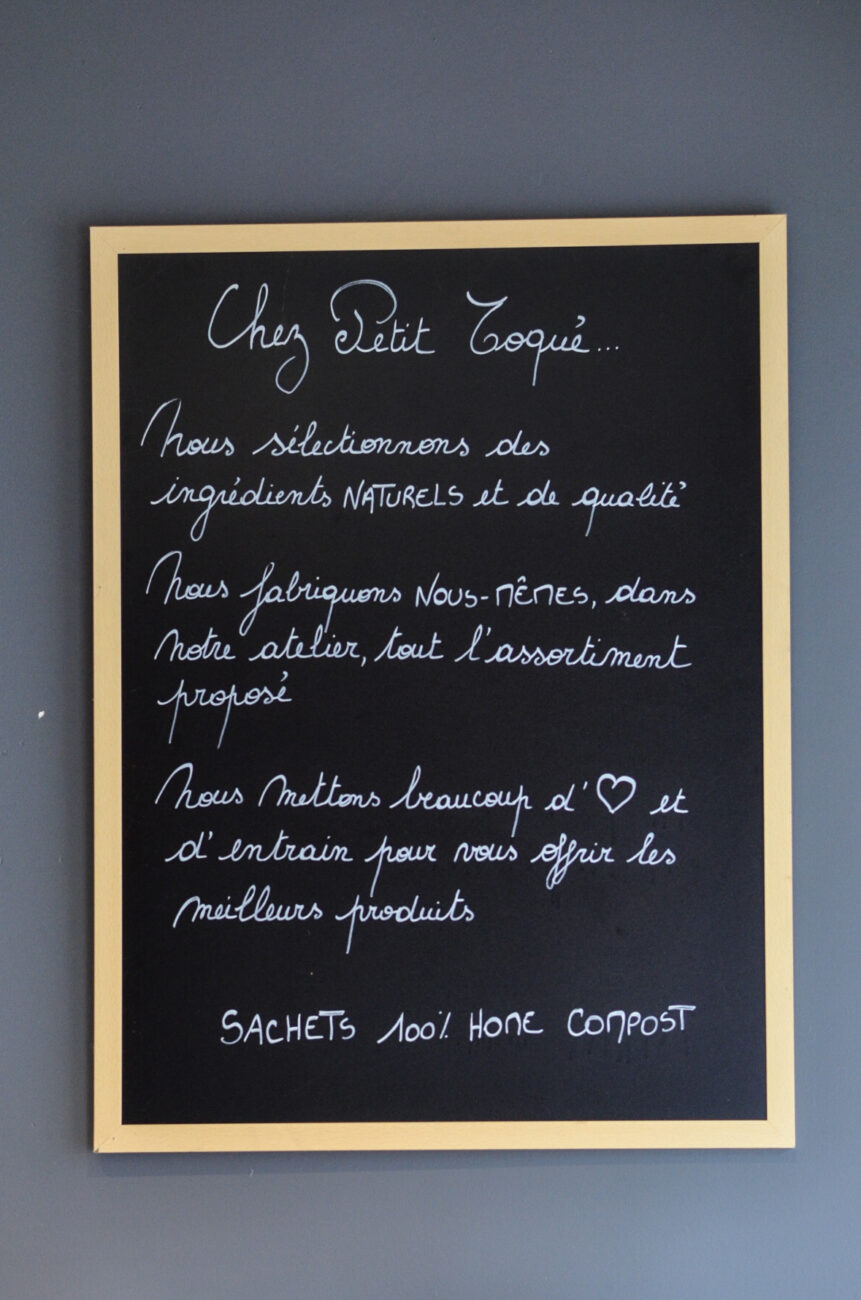 Chez Petit Toqué...
Nous sélectionnons des
ingrédients NATURELS et de qualité
Nous fabriquons NOUS-MÊMES, dans
notre atelier, tout l'assortiment
proposé
Nous mettons beaucoup d'♡ et
d'entrain pour vous offrir les
meilleurs produits
SACHETS 100% HOME COMPOST